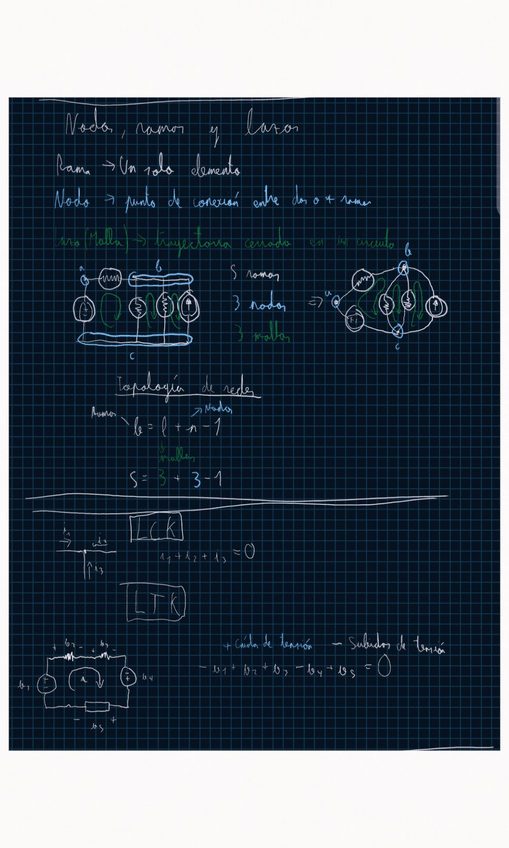 Nodos, ramas y lazos
Rama → Un solo elemento
Nodo → punto de conexión entre dos o + ramas
Lazo (Malla) → trayectoria cerrada en un circuito
a b
5 ramas
3 nodos
3 mallas
c
⇒ a b c
Topología de redes
Ramas Nodos
b = l + n - 1
Mallas
5 = 3 + 3 - 1
LCK
i1 i2 i3
i1 + i2 + i3 = 0
LTK
+ Caída de tensión - Subidas de tensión
- v1 + v2 + v3 - v4 + v5 = 0
+ v2 - + v3 -
v1 v4
- v5 +